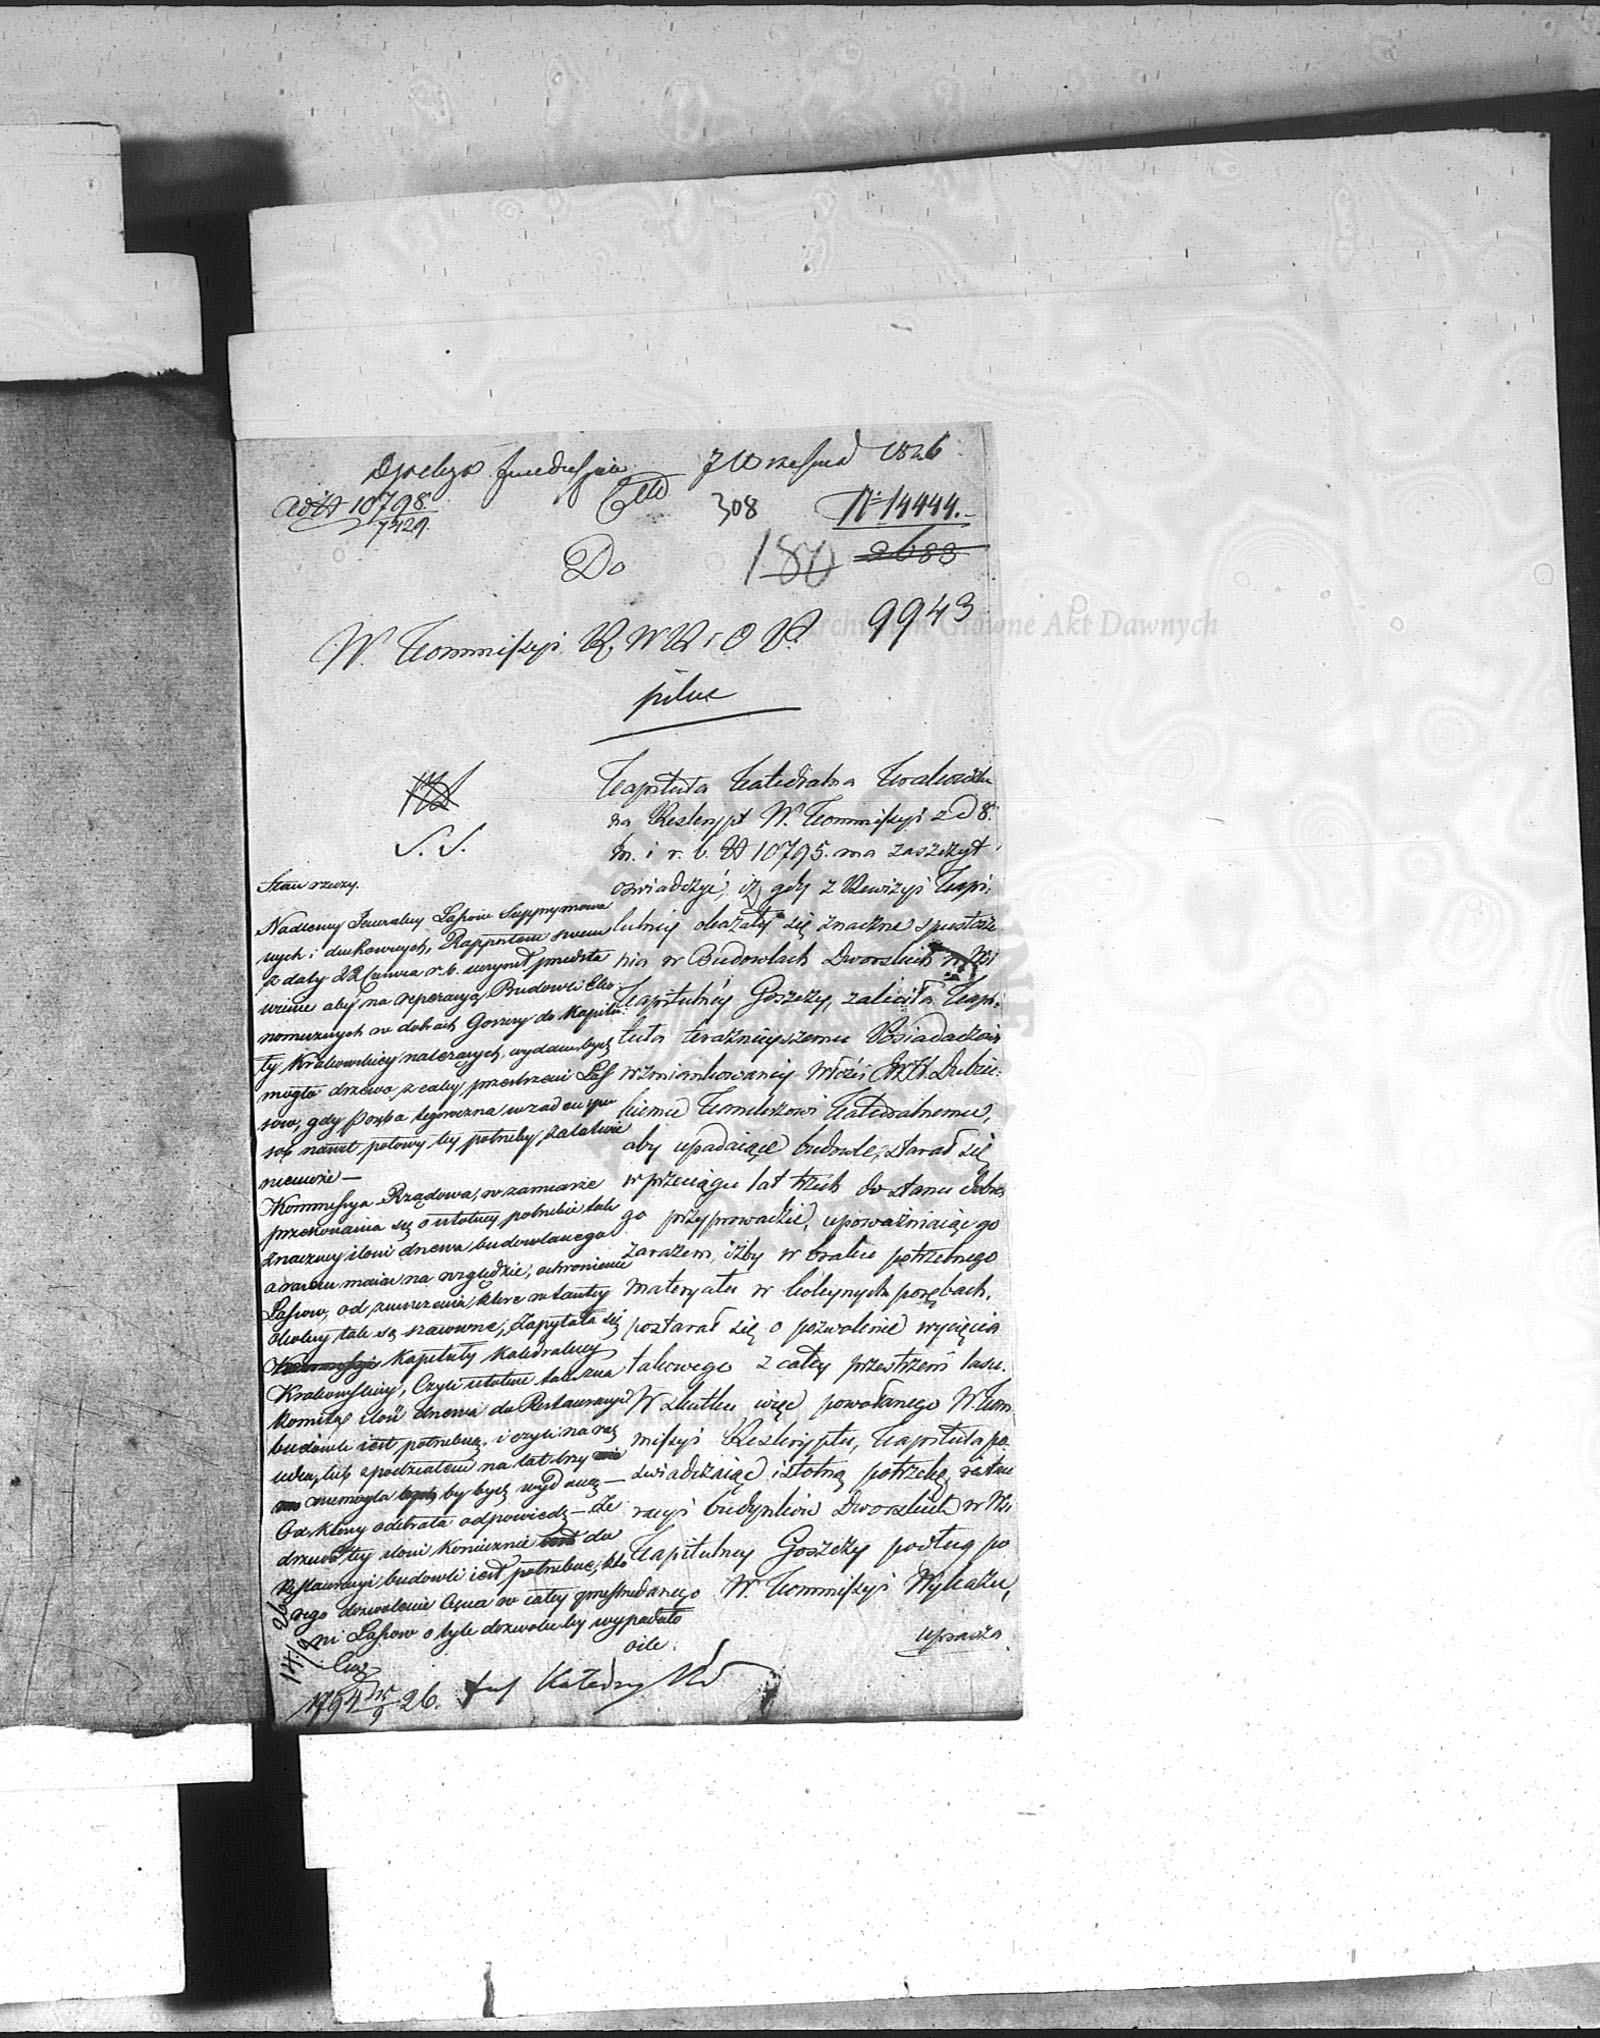 7 Września 1826
ad N 10798.
7429.
308
N: 14444.
Do
180
2683
9943
W. Kommissyi R. W. R. i O. P.
pilne
S. S.
Kapituła Katedralna Krakowska
na Reskrypt W. Kommissyi z d 8.
m. i r. b. N 10795. ma zaszczyt
oświadczyć, iż gdy z Rewizyi Kapi:
tulney okazały się znaczne spustosze
nia w Budowlach Dworskich w Wsi
Kapitulney Goszczy, zaleciła Kapi:
tuła teraźnieyszemu Posiadaczowi
wzmiankowaney Włości
Katedralnemu,
aby upadaiące budowle, starał się
w przeciągu lat trzech do stanu dobre
go przyprowadzić, upoważniaiąc go
zarazem, iżby w braku potrzebnego
materyału w koleynych porębach,
postarał się o pozwolenie wycięcia
takowego z całey przestrzeni lasu.
W skutku więc powołanego W. Kom
missyi Reskryptu, Kapituła po
świadczaiąc istotną potrzebę restau
racyi budynków Dworskich w Wsi
Kapitulney Goszczy podług po
danego W. Kommissyi Wykazu,
uprasza
Stan rzeczy.
Nadleśny Jeneralny Lasów Suppr­ymowa
nych i duchownych, Rapportem swem
z daty 22 Czerwca r. b. uczynił przedsta
wienie aby na reperacyą Budowli Eko
nomicznych w dobrach Goszczy do Kapitu
ły Krakowskiey należących, wydanebydź
mogło drzewo z całey przestrzeni Las
sów, gdy Poręba tegoroczna
nawet połowy tey potrzeby załatwić
niemoże —
Kommissya Rządowa, w zamiarze
przekonania się o istotney potrzebie tak
znaczney ilości drzewa budowlanego
a zarazem maiąc na względzie, ochronienie
Lasów, od zniszczenia, które w tamtey
okolicy tak są szacowne, Zapytała się
Kapituły Katedralney
Krakowskiey, Czyli istotnie tak zna
komita ilość drzewa do Restauracyi
budowli iest potrzebną, i czyli na raz
ieden, lub z podziałem na lat trzy
niemogła by bydź wydaną —
Od którey odebrała odpowiedź — że
drzewo tey ilości koniecznie do
Restauracyi budowli iest potrzebne, któ
rego dozwolenie cięcia w całey przestrze
ni Lasów o tyle dozwolić by wypadało
oile
14/9 26
26.